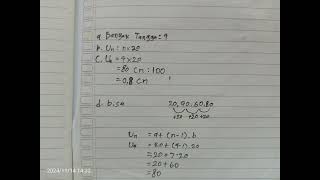 a. Banyak Tangga = 4
b. Un = n x 20
c. U4 = 4 x 20
= 80 cm : 100
= 0,8 cm
d. bisa
20, 40, 60, 80
+20 +20 +20
Un = a + (n-1) . b
U4 = 20 + (4-1) 20
= 20 + 3 . 20
= 20 + 60
= 80
2024/11/14 14:32